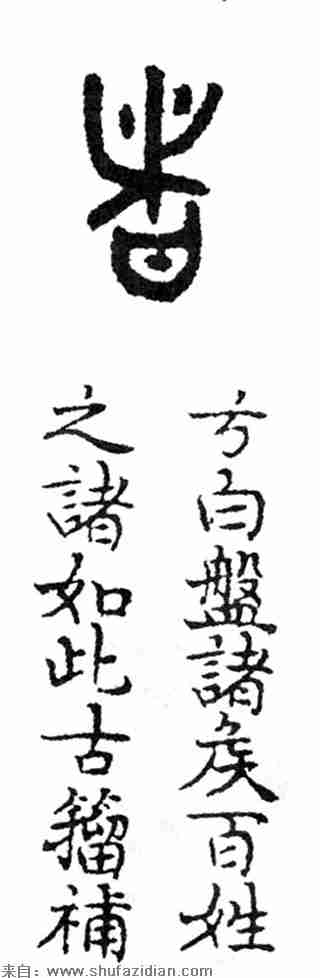 者
兮白盤諸矦百姓
之諸如此古籀補
来自：www.shufazidian.com